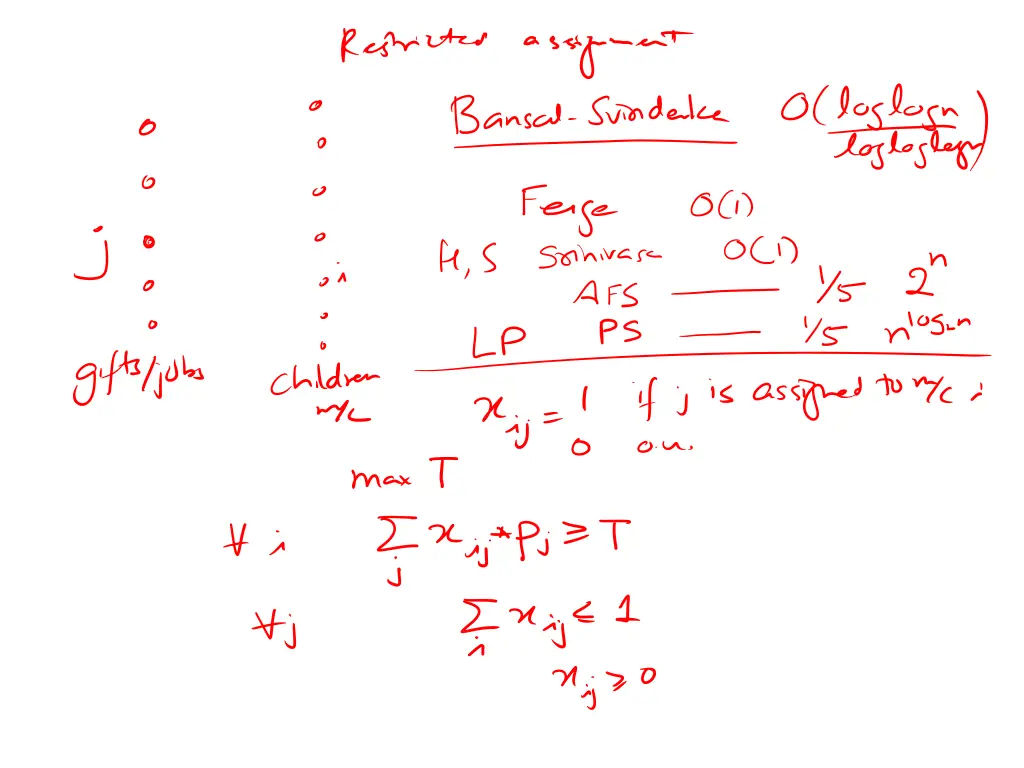 Restricted assignment
Bansal-Sviridenko O(loglogn / logloglogn)
Feige O(1)
H, S Srinivasa O(1)
AFS — 1/5 2^n
LP PS — 1/5 n^log₂n
j
i
gifts/jobs
children
m/c
x_ij = 1 if j is assigned to m/c i
0 o.w.
max T
∀ i ∑_j x_ij * p_j ≥ T
∀j ∑_i x_ij ≤ 1
x_ij ≥ 0